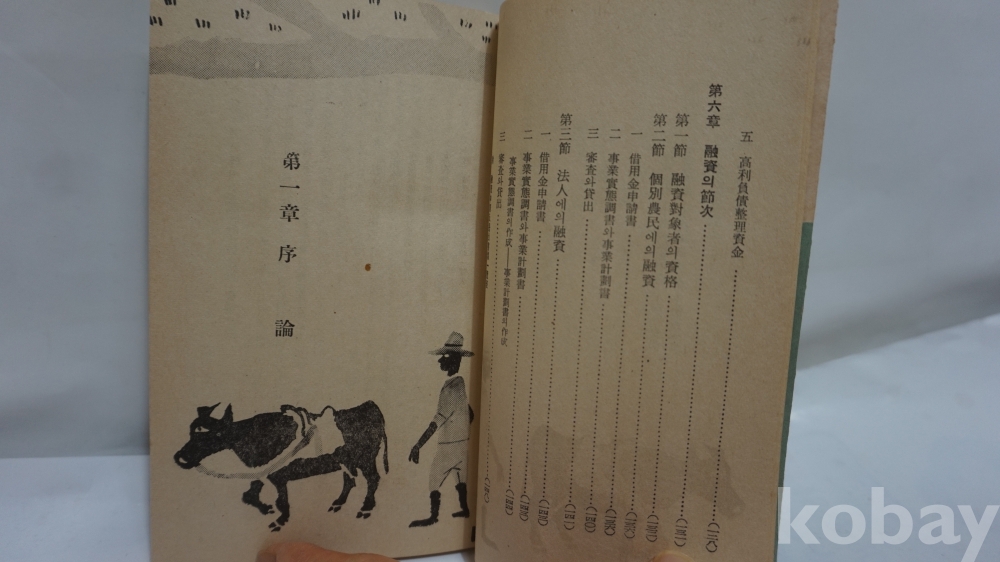 五 高利負債整理資金
第六章 融資의節次
第一節 融資對象者의資格
第二節 個別農民에의融資
一 借用金申請書
二 事業實態調書와事業計劃書
三 審査와貸出
第三節 法人에의融資
一 借用金申請書
二 事業實態調書와事業計劃書
事業實態調書의作成——事業計劃書의作成
三 審査와貸出
第一章 序論
kobay